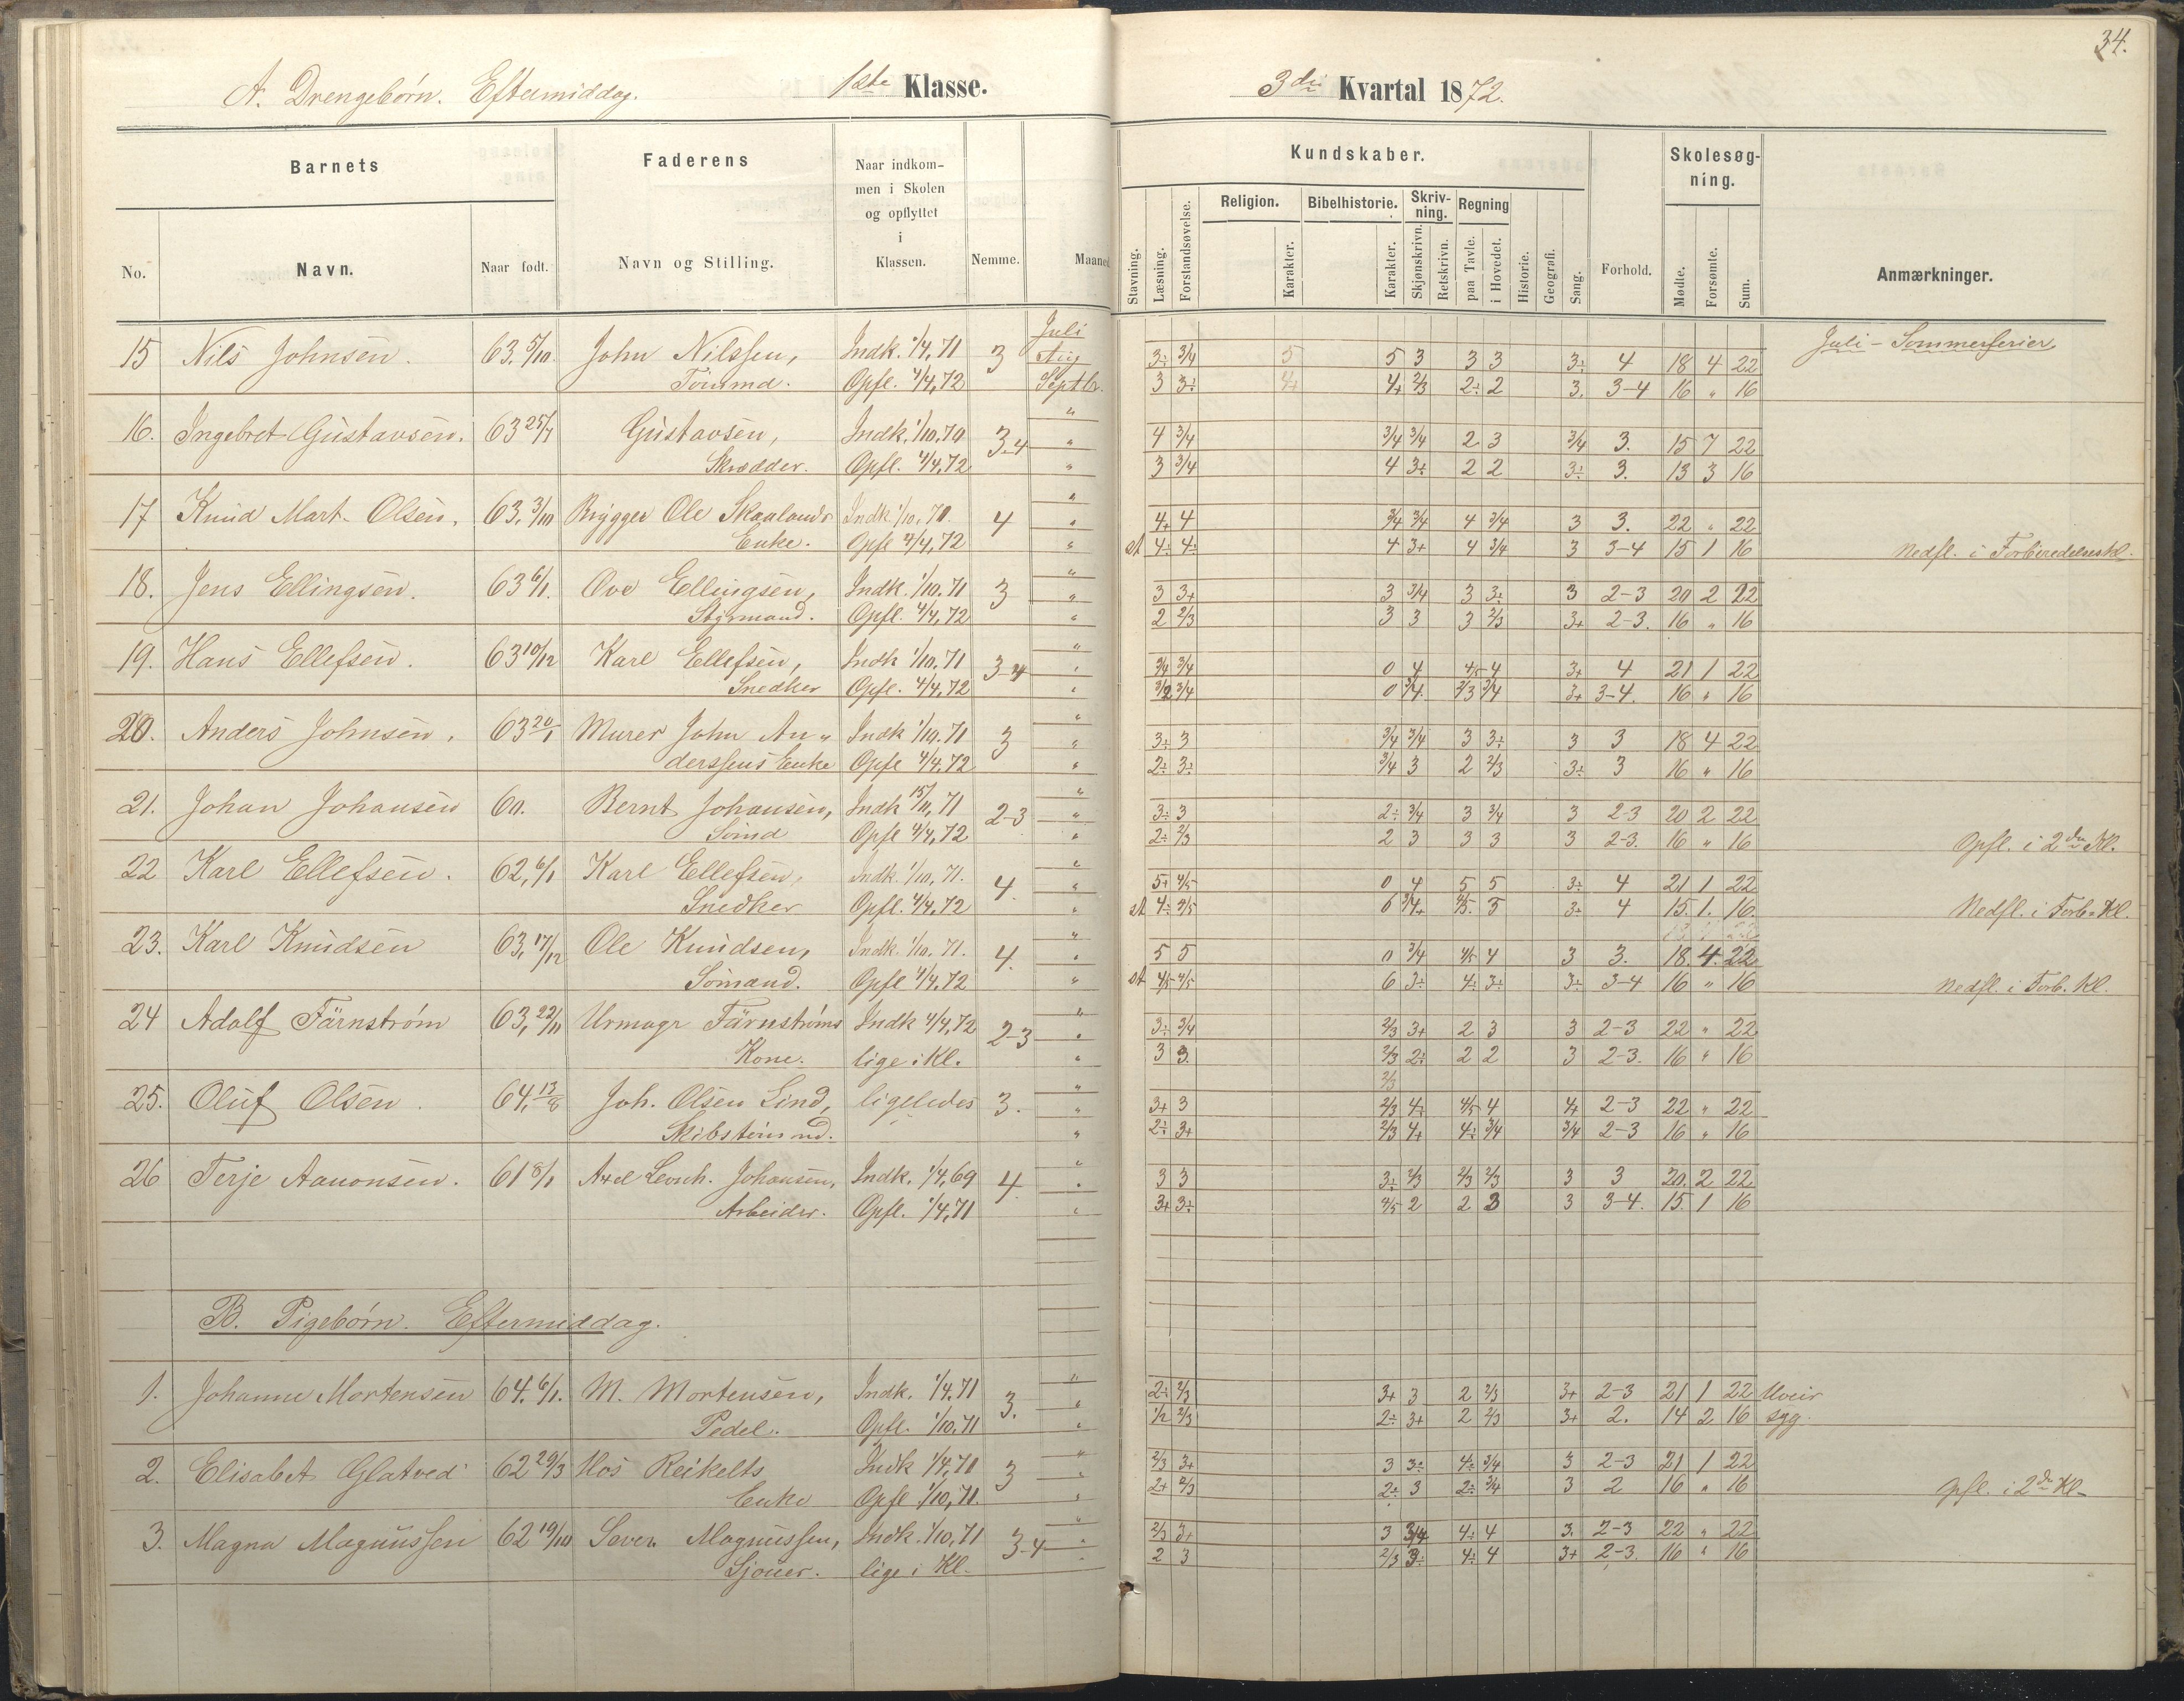 34.
A. Drengebørn. Eftermiddag. 1ste Klasse. 3die Kvartal 1872.
Barnets Faderens Naar indkommen i Skolen og opflyttet i Klassen. Nemme. Maaned
No. Navn. Naar født. Navn og Stilling.
Kundskaber. Skolesøgning.
Stavning. Læsning. Forstandsøvelse. Religion. Karakter. Bibelhistorie. Karakter. Skrivning. Skjønskrivn. Retskrivn. Regning paa Tavle. i Hovedet. Historie. Geografi. Sang. Forhold. Mødte. Forsømte. Sum. Anmærkninger.
Juli Juli - Sommerferier
15 Nils Johnsen. 63. 5/10. John Nilssen, Indk. 1/4, 71 3 Aug 3÷ 3/4 5 5 3 3 3 3÷ 4 18 4 22
Tømmd. Opfl. 4/4, 72 Septbr. 3 3÷ 4+ 4+ 2/3 2÷ 2 3. 3-4 16 " 16
16. Ingebret Gustavsen. 63 25/7 Gustavsen, Indk. 1/10. 70 3-4 " 4 3/4 3/4 3/4 2 3 3/4 3. 15 7 22
Skrædder. Opfl. 4/4, 72 " 3 3/4 4 3÷ 2 2 3÷ 3. 13 3 16
17 Knud Mart. Olsen. 63. 3/10 Brygger Ole Skaalands Indk. 1/10, 70. 4 " 4+ 4 3/4 3/4 4 3/4 3 3. 22 " 22
Enke. Opfl 4/4, 72 " 4÷ 4÷ 4 3+ 4 3/4 3 3-4 15 1 16 Nedfl. i Forberedelseskl.
18. Jens Ellingsen. 63 6/1. Ove Ellingsen, Indk. 1/10. 71 3 " 3 3+ 3 3/4 3 3÷ 3 2-3 20 2 22
Styrmand. Opfl. 4/4, 72 " 2 2/3 3 3 3 2/3 3+ 2-3. 16 " 16
19. Hans Ellefsen. 63 10/12 Karl Ellefsen, Indk 1/10, 71 3-4 " 3/4 3/4 0 4 4/5 4 3+ 4 21 1 22
Snedker Opfl. 4/4, 72 " 3/4 0 3/4. 2/3 3/4 3+ 3-4. 16 " 16
20. Anders Johnsen. 63 20/1 Murer John An- Indk 1/10. 71 3 " 3÷ 3 3/4 3/4 3 3÷ 3 3 18 4 22
derssens Enke Opfl 4/4, 72 " 2÷ 3÷ 3/4 3 2 2/3 3÷ 3 16 " 16
21. Johan Johansen 60. Bernt Johansen, Indk 15/11, 71 2-3 " 3÷ 3 2÷ 3/4 3 3/4 3 2-3 20 2 22
Sømd Opfl 4/4, 72 " 2÷ 2/3 2 3 3 3 3 2-3. 16 " 16 Opfl. i 2den Kl.
22 Karl Ellefsen. 62, 6/1 Karl Ellefsen, Indk. 1/10, 71. 4. " 5+ 4/5 0 4 5 5 3÷ 4 21 1 22
Snedker Opfl. 4/4, 72 " 4÷ 4/5 6 3/4+ 4/5. 5 3÷ 4 15. 1. 16. Nedfl. i Forb. Kl.
23. Karl Knudsen 63, 17/12 Ole Knudsen, Indk. 1/10. 71. 4. " 5 5 0 3/4 4/5 4 3 3. 18. 4. 22
Sømand. Opfl 4/4, 72 " 4/5 4/5 6 3÷ 4÷ 3÷ 3÷ 3-4 16 " 16 Nedfl. i Forb. Kl.
24 Adolf Färnstrøm 63, 22/11 Urmagr Färnstrøms Indk 4/4, 72 2-3 " 3÷ 3/4 2/3 3+ 2 3 3 2-3 22 " 22
Kone. lige i Kl. " 3 3. 2/3 2÷ 2 2 3 2-3. 16 " 16
2/3
25. Oluf Olsen. 64, 13/8 Joh. Olsen Lind, ligeledes 3. " 3+ 3 2/3 4÷ 4/5 4 4+ 2-3 22 " 22
Skibstømmd. " 2÷ 3+ 2/3 4+ 4÷ 3/4 3/4 2-3 16 " 16
26 Terje Aanonsen. 61 8/1 Axel Leonh. Johansen, Indk. 1/4, 69 4 " 3 3 3÷ 2/3 2/3 2/3 3 3 20. 2 22
Arbeider. Opfl. 1/4, 71 " 3+ 3÷ 4/5 2 2 3 3 3-4. 15. 1 16
B. Pigebørn. Eftermiddag.
1. Johanne Mortensen 64. 6/1. M. Mortensen, Indk. 1/4. 71 3. " 2÷ 2/3 3+ 3 2 2/3 3+ 2-3 21 1 22 Uveir
Pedel. Opfl. 1/10. 71 " 1/2 2/3 2÷ 3+ 2 2/3 3+ 2. 14 2 16 syg.
2. Elisabet Glatved 62 29/3 Hos Reikelts Indk 1/4, 70 3 " 2/3 3+ 3 3÷ 4÷ 3/4 3 2-3 21 1 22
Enke Opfl 1/10, 71. " 2+ 2/3 2÷ 3 2÷ 3/4 3 2 16 " 16 Opfl. i 2den Kl.
3. Magna Magnussen 62 19/10 Søver. Magnussen, Indk. 1/10, 71 3-4 " 2/3 3+ 3 3/4 4÷ 4 3. 2-3 22 " 22
Sjouer. lige i Kl. " 2 3 2/3 3÷ 4÷ 4 3+ 2-3. 16 " 16